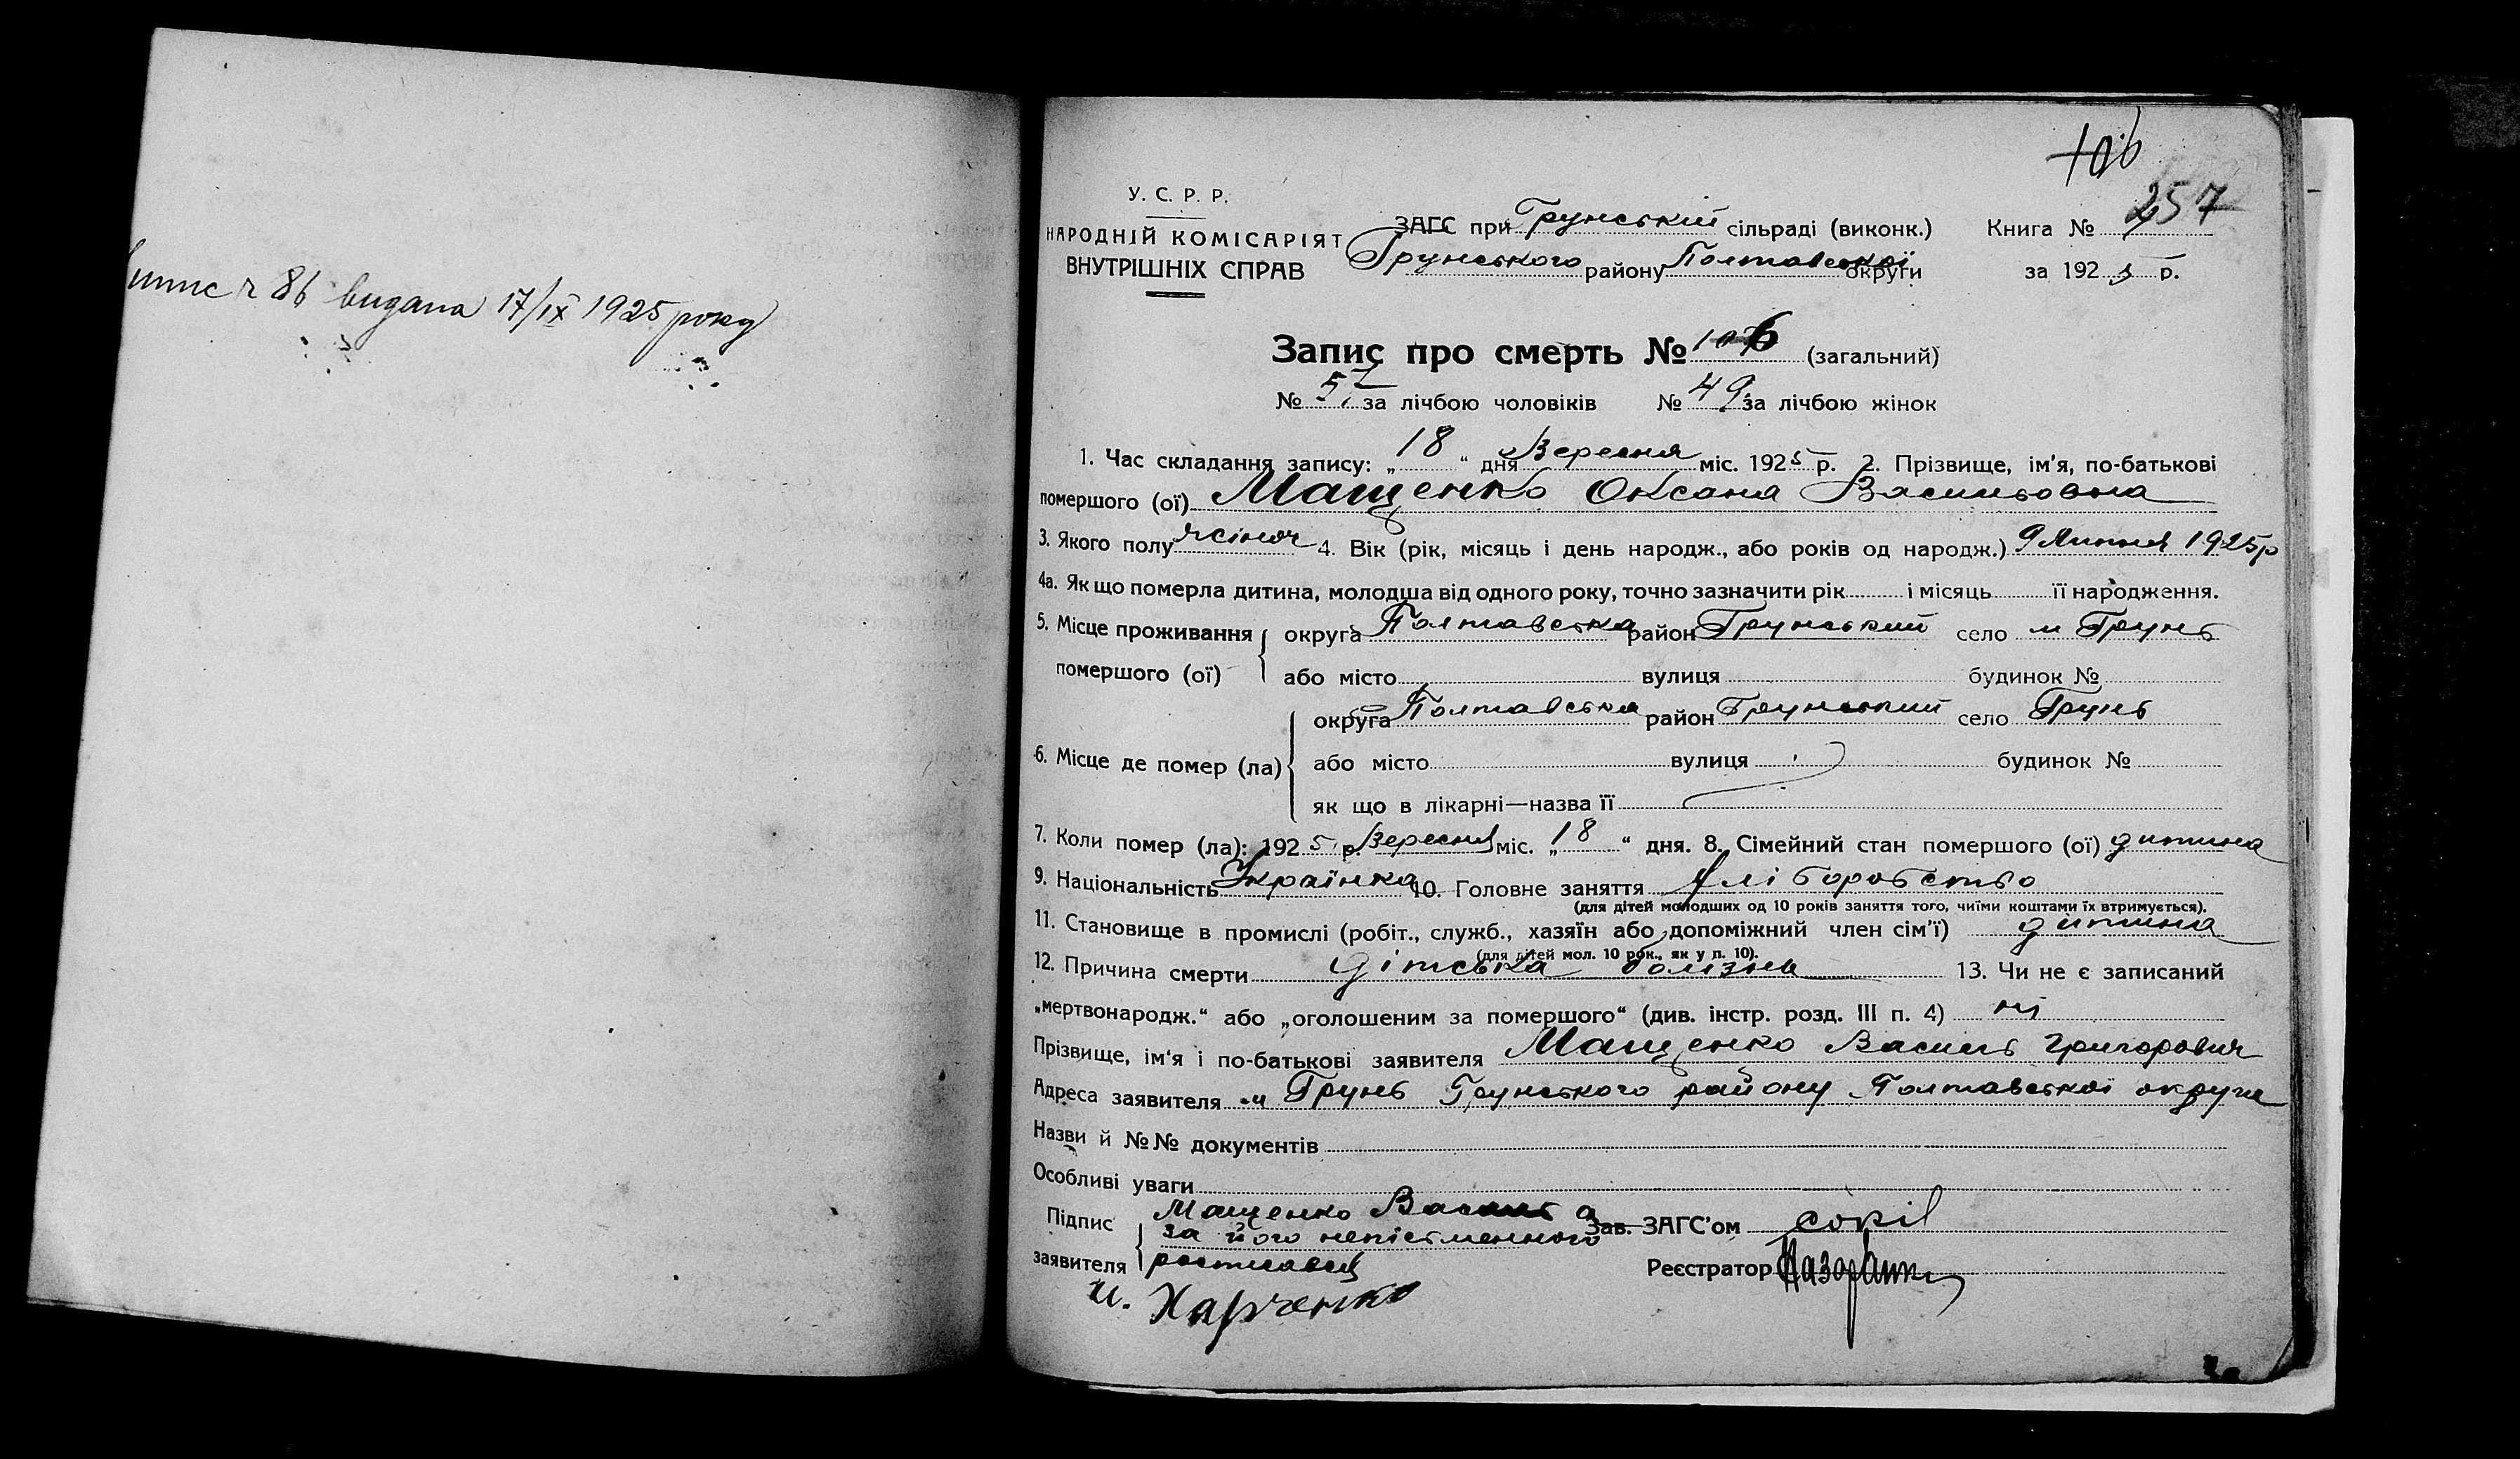 випис ч 86 видана 17/IX 1925 року
106
257
У. С. Р. Р.
НАРОДНІЙ КОМІСАРІЯТ
ВНУТРІШНІХ СПРАВ
ЗАГС при Грунський сільраді (виконк.)
Грунського району Полтавської округи
Книга №
за 1925 р.
Запис про смерть № 106 (загальний)
№ 57 за лічбою чоловіків № 49 за лічбою жінок
1. Час складання запису: „18“ дня Вересня міс. 1925 р. 2. Прізвище, ім’я, по-батькові
помершого (ої) Мащенко Оксана Васильовна
3. Якого полу жіноч 4. Вік (рік, місяць і день народж., або років од народж.) 9 Липня 1925р
4а. Як що померла дитина, молодша від одного року, точно зазначити рік і місяць її народження.
5. Місце проживання помершого (ої) округа Полтавська район Грунський село м Грунь
або місто вулиця будинок №
6. Місце де помер (ла) округа Полтавська район Грунський село Грунь
або місто вулиця будинок №
як що в лікарні—назва її
7. Коли помер (ла): 1925 р. Вересня міс. „18“ дня. 8. Сімейний стан помершого (ої) дитина
9. Національність Українка 10. Головне заняття Хліборобство
(для дітей молодших од 10 років заняття того, чиїми коштами їх втримується).
11. Становище в промислі (робіт., служб., хазяїн або допоміжний член сім’ї) дитина
(для дітей мол. 10 рок., як у п. 10).
12. Причина смерти дітська болізнь 13. Чи не є записаний
„мертвонародж.“ або „оголошеним за помершого“ (див. інстр. розд. III п. 4) ні
Прізвище, ім‘я і по-батькові заявителя Мащенко Василь Григорович
Адреса заявителя м Грунь Грунського району Полтавської округи
Назви й №№ документів
Особливі уваги
Підпис заявителя Мащенко Василь а
за його непісьменного
росписався
И. Харченко
Зав. ЗАГС’ом
Реєстратор